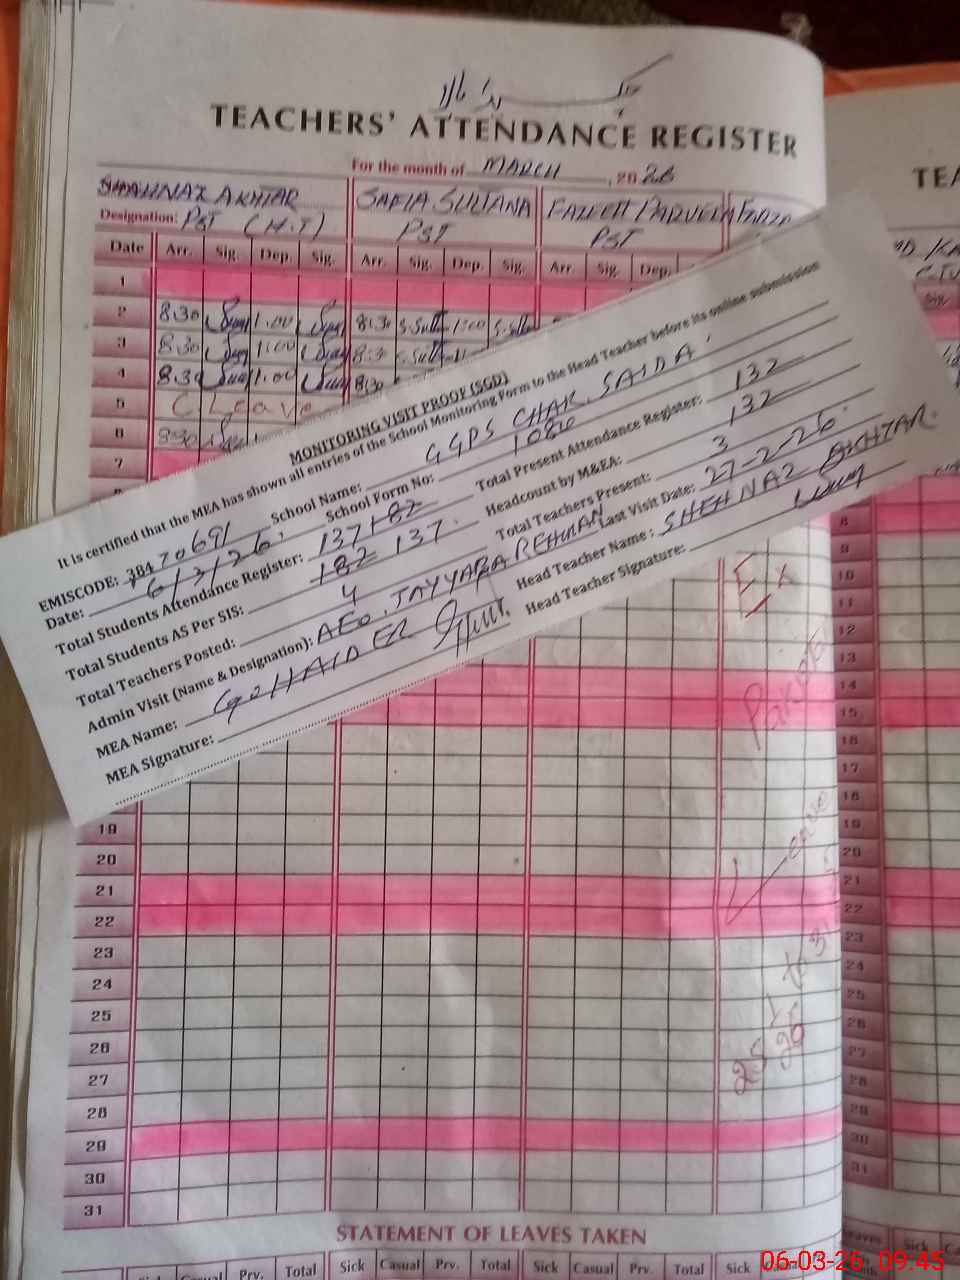 TEACHERS' ATTENDANCE REGISTER
For the month of MARCH, 2026
SHAHNAZ AKHTAR SAFIA SULTANA
Designation: PST (H.T) PST PST
Date Arr. Sig. Dep. Sig. Arr. Sig. Dep. Sig. Arr Sig. Dep.
1
2 8:30 1.00 8:30 1:00
3 8:30 1:00
4 8:30 1.00 8:30
5 C Leave
6 8:30
7
MONITORING VISIT PROOF (SGD)
It is certified that the MEA has shown all entries of the School Monitoring Form to the Head Teacher before its online submission
EMISCODE: 38470691 School Name: GGPS CHAK SAIDA.
Date: 6/3/26. School Form No: 1080
Total Students Attendance Register: 137 Total Present Attendance Register: 132
Total Students AS Per SIS: 137. Headcount by M&EA: 132
Total Teachers Posted: 4 Total Teachers Present: 3
Admin Visit (Name & Designation): AEO. TAYYABA REHMAN Last Visit Date: 27-2-26.
MEA Name: G HAIDER Head Teacher Name: SHEHNAZ AKHTAR
MEA Signature: Head Teacher Signature:
19
20
21
22
23
24
25
26
27
28
29
30
31
STATEMENT OF LEAVES TAKEN
Casual Prv. Total Sick Casual Prv. Total Sick Casual Prv. Total Sick
TEA
Sig
8
9
10
11
12
13
14
15
16
17
18
19
20
21
22
23
24
25
26
27
28
29
30
31
Leaves Sick
06-03-26 09:45